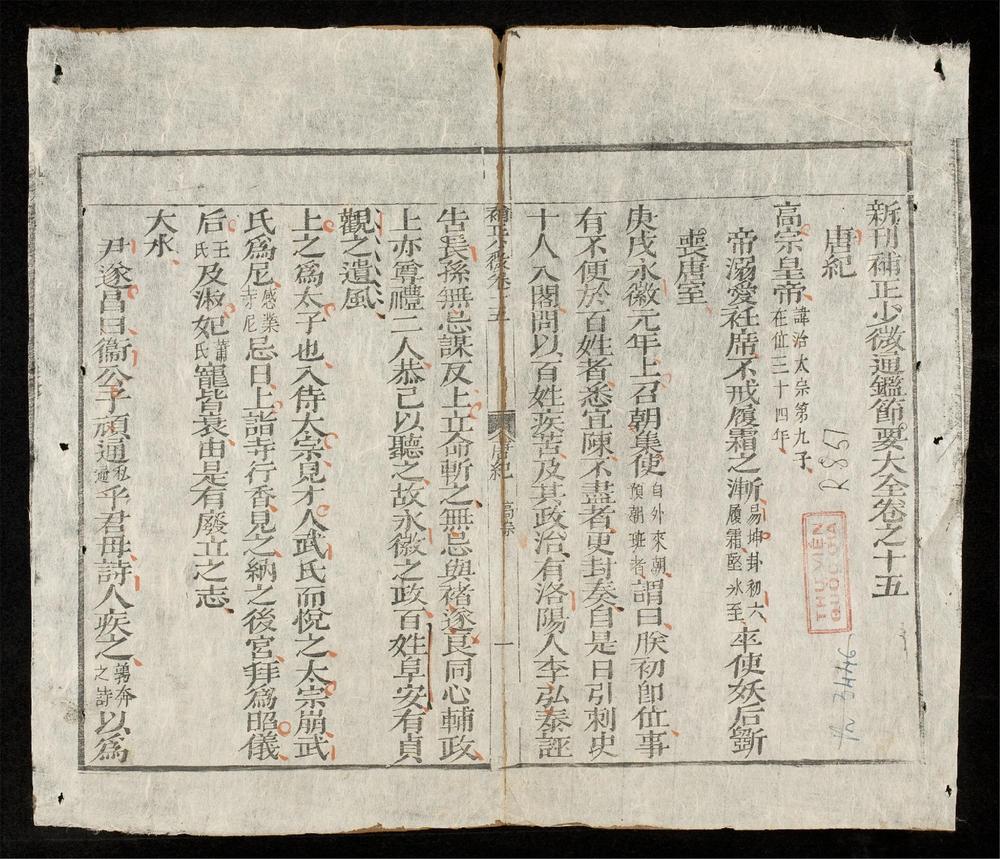 新刊補正少微通鑑節要大全卷之十五
唐紀
高宗皇帝諱治太宗第九子在位三十四年
帝溺愛衽席不戒履霜之漸易坤卦初六履霜堅氷至卒使妖后斵
喪唐室
庚戌永徽元年上召朝集使自外來朝預朝班者謂曰朕初即位事
有不便於百姓者悉宜陳不盡者更封奏自是日引刺史
十人入閣問以百姓疾苦及其政治有洛陽人李弘泰誣
補正少微卷十五 唐紀 高宗 一
告長孫無忌謀反上立命斬之無忌與褚遂良同心輔政
上亦尊禮二人恭己以聽之故永徽之政百姓阜安有貞
觀之遺風
上之爲太子也入侍太宗見才人武氏而悅之太宗崩武
氏爲尼感業寺尼忌日上詣寺行香見之納之後宮拜爲昭儀
后王氏及淑妃蕭氏寵皆衰由是有廢立之志
大水
尹遂昌曰衞公子頑通私通乎君母詩人疾之鶉奔之詩以爲
R.851
THƯ VIỆN
QUỐC GIA